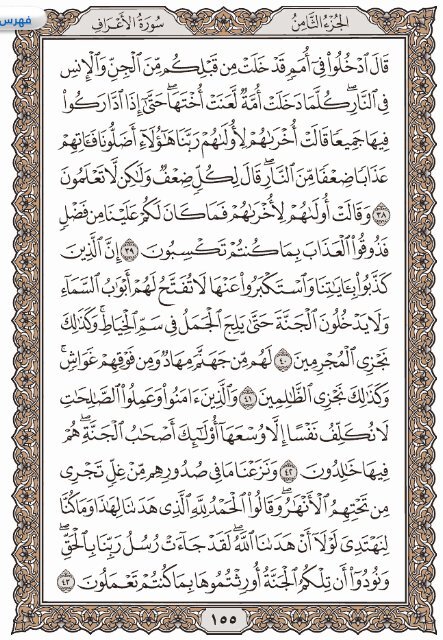 فهرس
الجُزْءُ الثَّامِنُ سُورَةُ الأَعْرَافِ
قَالَ ٱدْخُلُوا۟ فِىٓ أُمَمٍ قَدْ خَلَتْ مِن قَبْلِكُم مِّنَ ٱلْجِنِّ وَٱلْإِنسِ
فِى ٱلنَّارِ ۖ كُلَّمَا دَخَلَتْ أُمَّةٌ لَّعَنَتْ أُخْتَهَا ۖ حَتَّىٰٓ إِذَا ٱدَّارَكُوا۟
فِيهَا جَمِيعًا قَالَتْ أُخْرَىٰهُمْ لِأُولَىٰهُمْ رَبَّنَا هَٰٓؤُلَآءِ أَضَلُّونَا فَـَٔاتِهِمْ
عَذَابًا ضِعْفًا مِّنَ ٱلنَّارِ ۖ قَالَ لِكُلٍّ ضِعْفٌ وَلَٰكِن لَّا تَعْلَمُونَ
٣٨ وَقَالَتْ أُولَىٰهُمْ لِأُخْرَىٰهُمْ فَمَا كَانَ لَكُمْ عَلَيْنَا مِن فَضْلٍ
فَذُوقُوا۟ ٱلْعَذَابَ بِمَا كُنتُمْ تَكْسِبُونَ ٣٩ إِنَّ ٱلَّذِينَ
كَذَّبُوا۟ بِـَٔايَٰتِنَا وَٱسْتَكْبَرُوا۟ عَنْهَا لَا تُفَتَّحُ لَهُمْ أَبْوَٰبُ ٱلسَّمَآءِ
وَلَا يَدْخُلُونَ ٱلْجَنَّةَ حَتَّىٰ يَلِجَ ٱلْجَمَلُ فِى سَمِّ ٱلْخِيَاطِ ۚ وَكَذَٰلِكَ
نَجْزِى ٱلْمُجْرِمِينَ ٤٠ لَهُم مِّن جَهَنَّمَ مِهَادٌ وَمِن فَوْقِهِمْ غَوَاشٍ ۚ
وَكَذَٰلِكَ نَجْزِى ٱلظَّٰلِمِينَ ٤١ وَٱلَّذِينَ ءَامَنُوا۟ وَعَمِلُوا۟ ٱلصَّٰلِحَٰتِ
لَا نُكَلِّفُ نَفْسًا إِلَّا وُسْعَهَآ أُو۟لَٰٓئِكَ أَصْحَٰبُ ٱلْجَنَّةِ ۖ هُمْ
فِيهَا خَٰلِدُونَ ٤٢ وَنَزَعْنَا مَا فِى صُدُورِهِم مِّنْ غِلٍّ تَجْرِى
مِن تَحْتِهِمُ ٱلْأَنْهَٰرُ ۖ وَقَالُوا۟ ٱلْحَمْدُ لِلَّهِ ٱلَّذِى هَدَىٰنَا لِهَٰذَا وَمَا كُنَّا
لِنَهْتَدِىَ لَوْلَآ أَنْ هَدَىٰنَا ٱللَّهُ ۖ لَقَدْ جَآءَتْ رُسُلُ رَبِّنَا بِٱلْحَقِّ ۖ
وَنُودُوٓا۟ أَن تِلْكُمُ ٱلْجَنَّةُ أُورِثْتُمُوهَا بِمَا كُنتُمْ تَعْمَلُونَ ٤٣
١٥٥